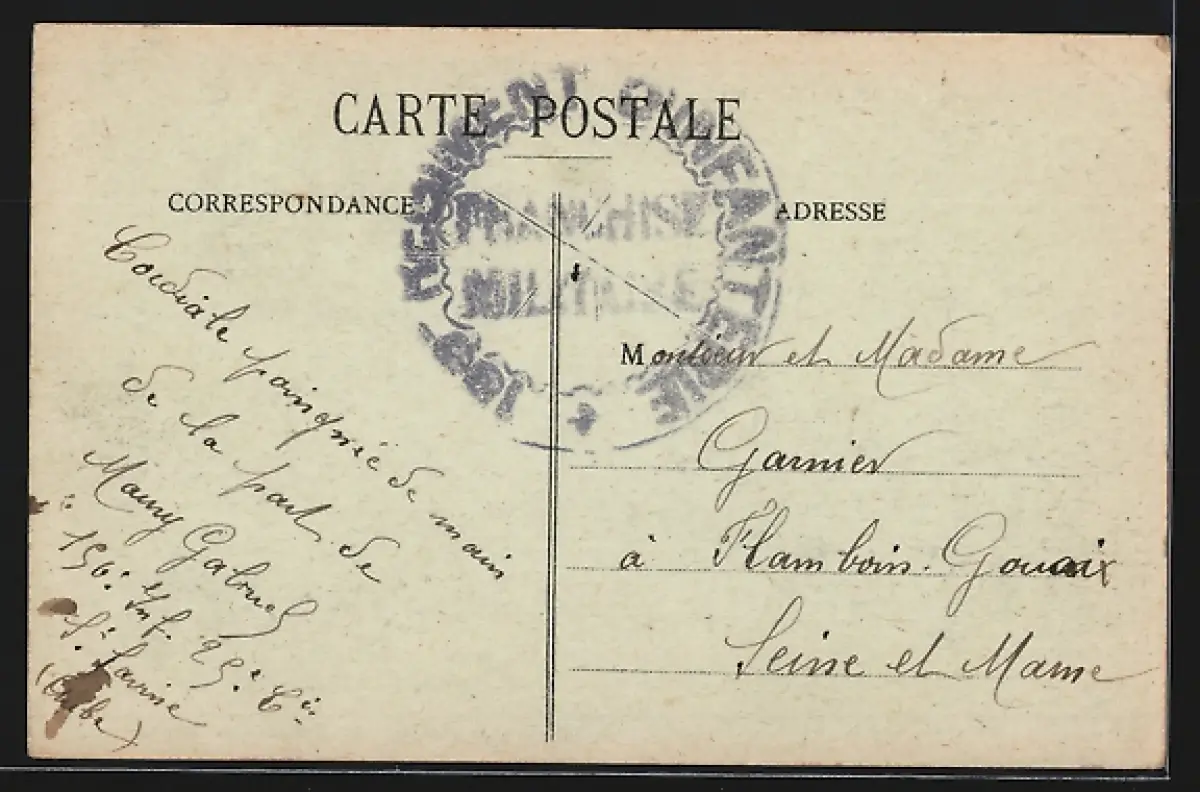 CARTE POSTALE
CORRESPONDANCE
ADRESSE
RÉGIMENT D'INFANTERIE
FRANCHISE
MILITAIRE
Cordiale poingnée de main
de la part de
Gabriel
156e Inf. 25e Cie
(Aube)
Monsieur et Madame
Garnier
à Flamboin. Gouaix
Seine et Marne